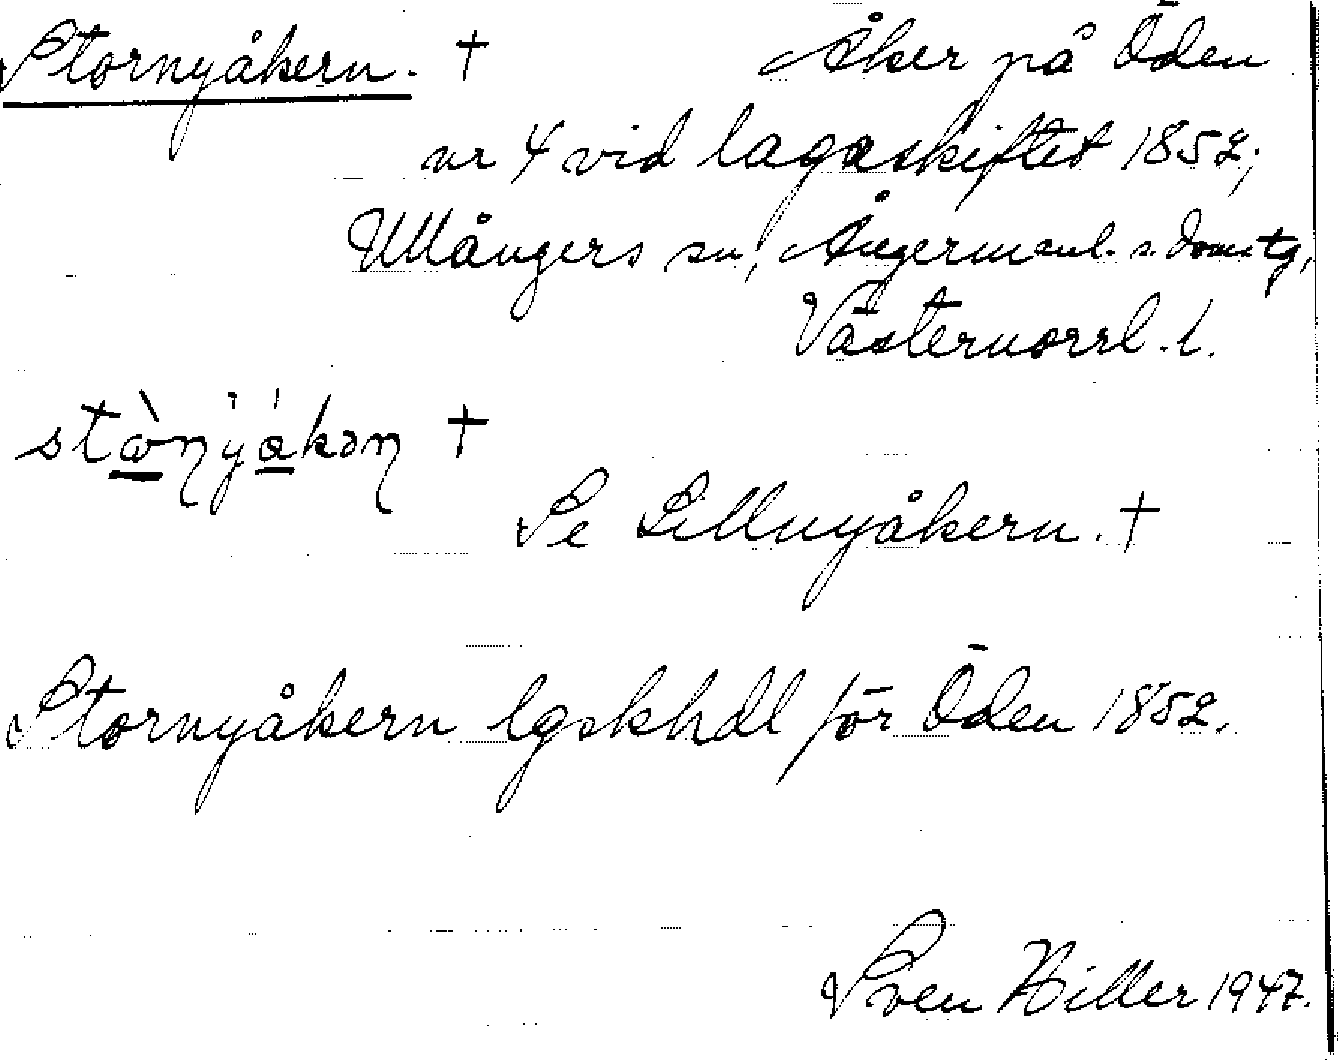 Stornyåkern. † Åker på Öden
nr 4 vid lagaskiftet 1852;
Ullångers sn, Ångermanl. s. domsg,
Västernorrl. l.
†
Se Lillnyåkern. †
Stornyåkern lgskhdl för Öden 1852.
Sven Hiller 1947.